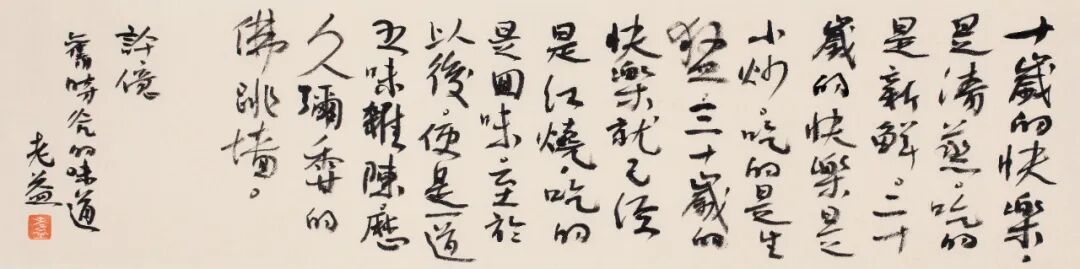 十歲的快樂，
是清蒸。吃的
是新鮮。二十
歲的快樂是
小炒。吃的是生
猛。三十歲的
快樂就已經
是紅燒。吃的
是回味。至於
以後，便是一道
五味雜陳歷
久彌香的
佛跳墻。
舊時光的味道
老益